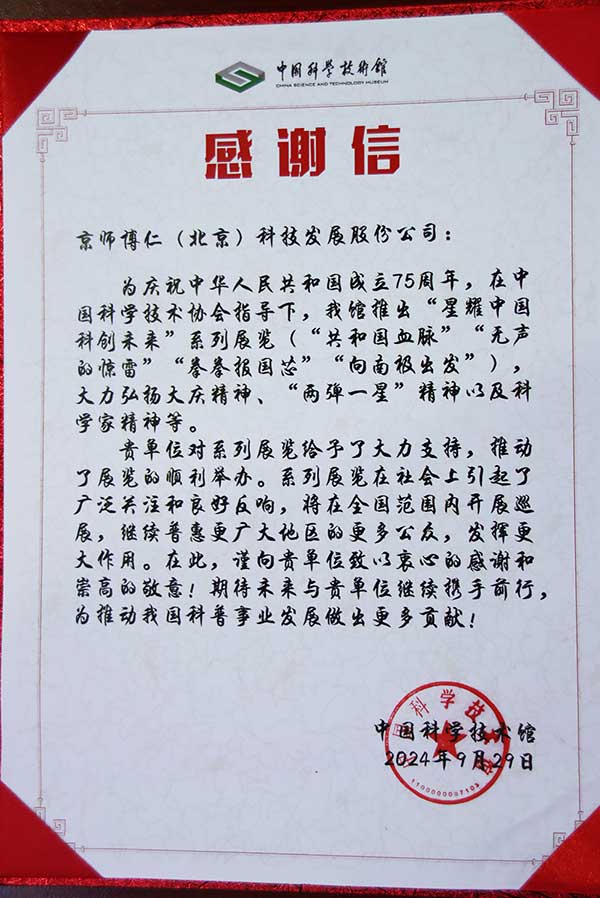 中国科学技術館
CHINA SCIENCE AND TECHNOLOGY MUSEUM
感谢信
京师博仁（北京）科技发展股份公司：
为庆祝中华人民共和国成立75周年，在中
国科学技术协会指导下，我馆推出“星耀中国
科创未来”系列展览（“共和国血脉”“无声
的惊雷”“拳拳报国芯”“向南极出发”），
大力弘扬大庆精神、“两弹一星”精神以及科
学家精神等。
贵单位对系列展览给予了大力支持，推动
了展览的顺利举办。系列展览在社会上引起了
广泛关注和良好反响，将在全国范围内开展巡
展，继续普惠更广大地区的更多公众，发挥更
大作用。在此，谨向贵单位致以衷心的感谢和
崇高的敬意！期待未来与贵单位继续携手前行，
为推动我国科普事业发展做出更多贡献！
中国科学技术馆
2024年9月29日